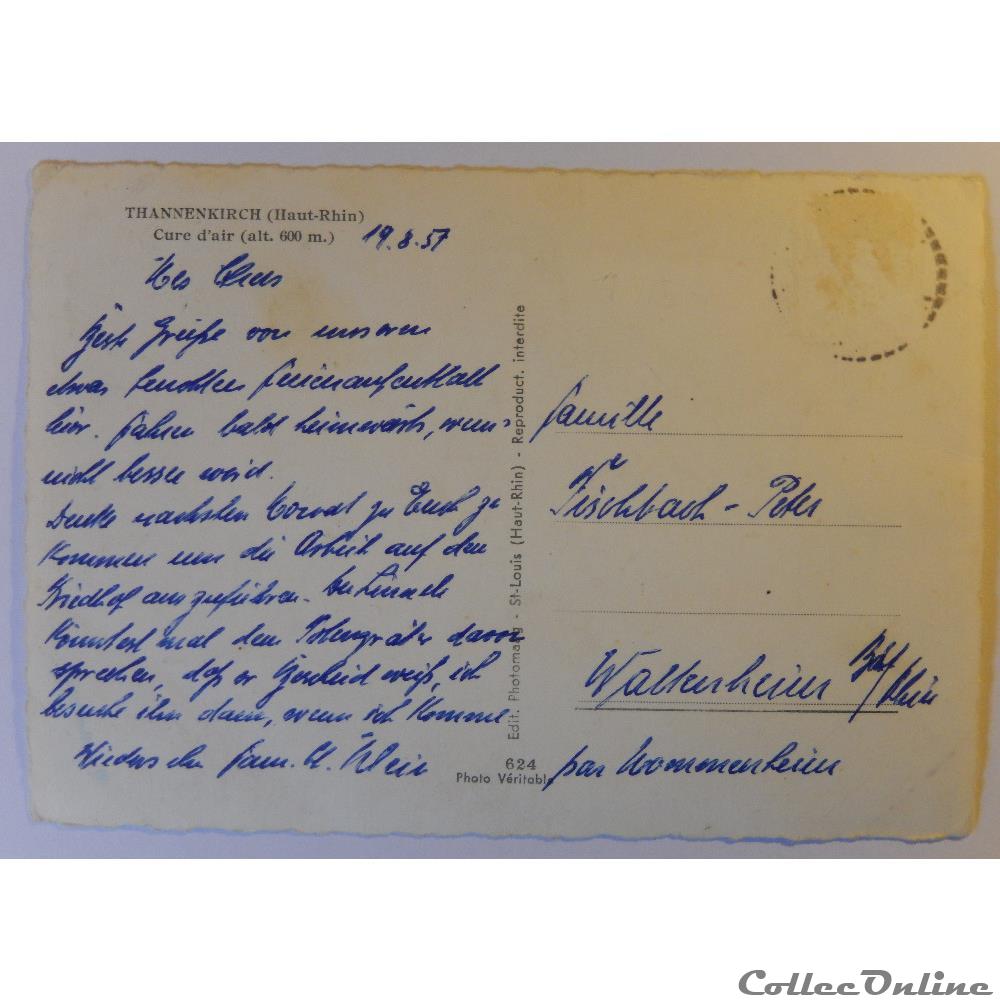 THANNENKIRCH (Haut-Rhin)
Cure d'air (alt. 600 m.)
19.8.57
Grüße von unseren
etwas feuchten Ferienaufenthalt
hier. Fahren bald heimwärts, wenn's
nicht besser wird.
Denke nächsten Monat zu Euch zu
Kommen um die Arbeit auf den
Friedhof auszuführen.
Könntest mal dem Totengräber davon
sprechen, daß er Bescheid weiß, ich
besuche ihn dann, wenn ich Komme
Wiedersehn Fam. Klein
Edit. Photomang - St-Louis (Haut-Rhin) - Reproduct. interdite
624
Photo Véritable
Famille
Fischbach - Peter
Waltenheim
Rhin
par Mommenheim
CollecOnline